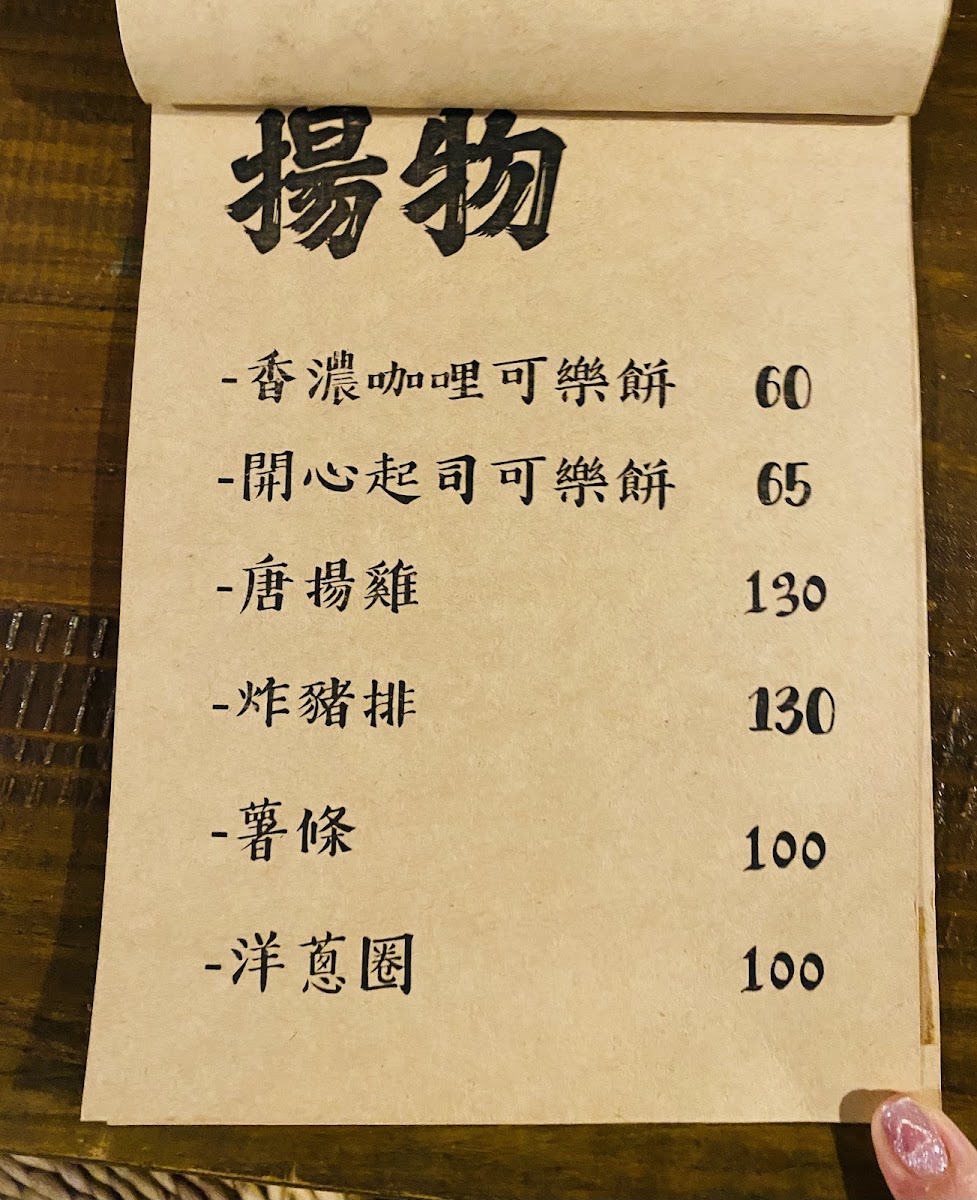 揚物
-香濃咖哩可樂餅 60
-開心起司可樂餅 65
-唐揚雞 130
-炸豬排 130
-薯條 100
-洋蔥圈 100